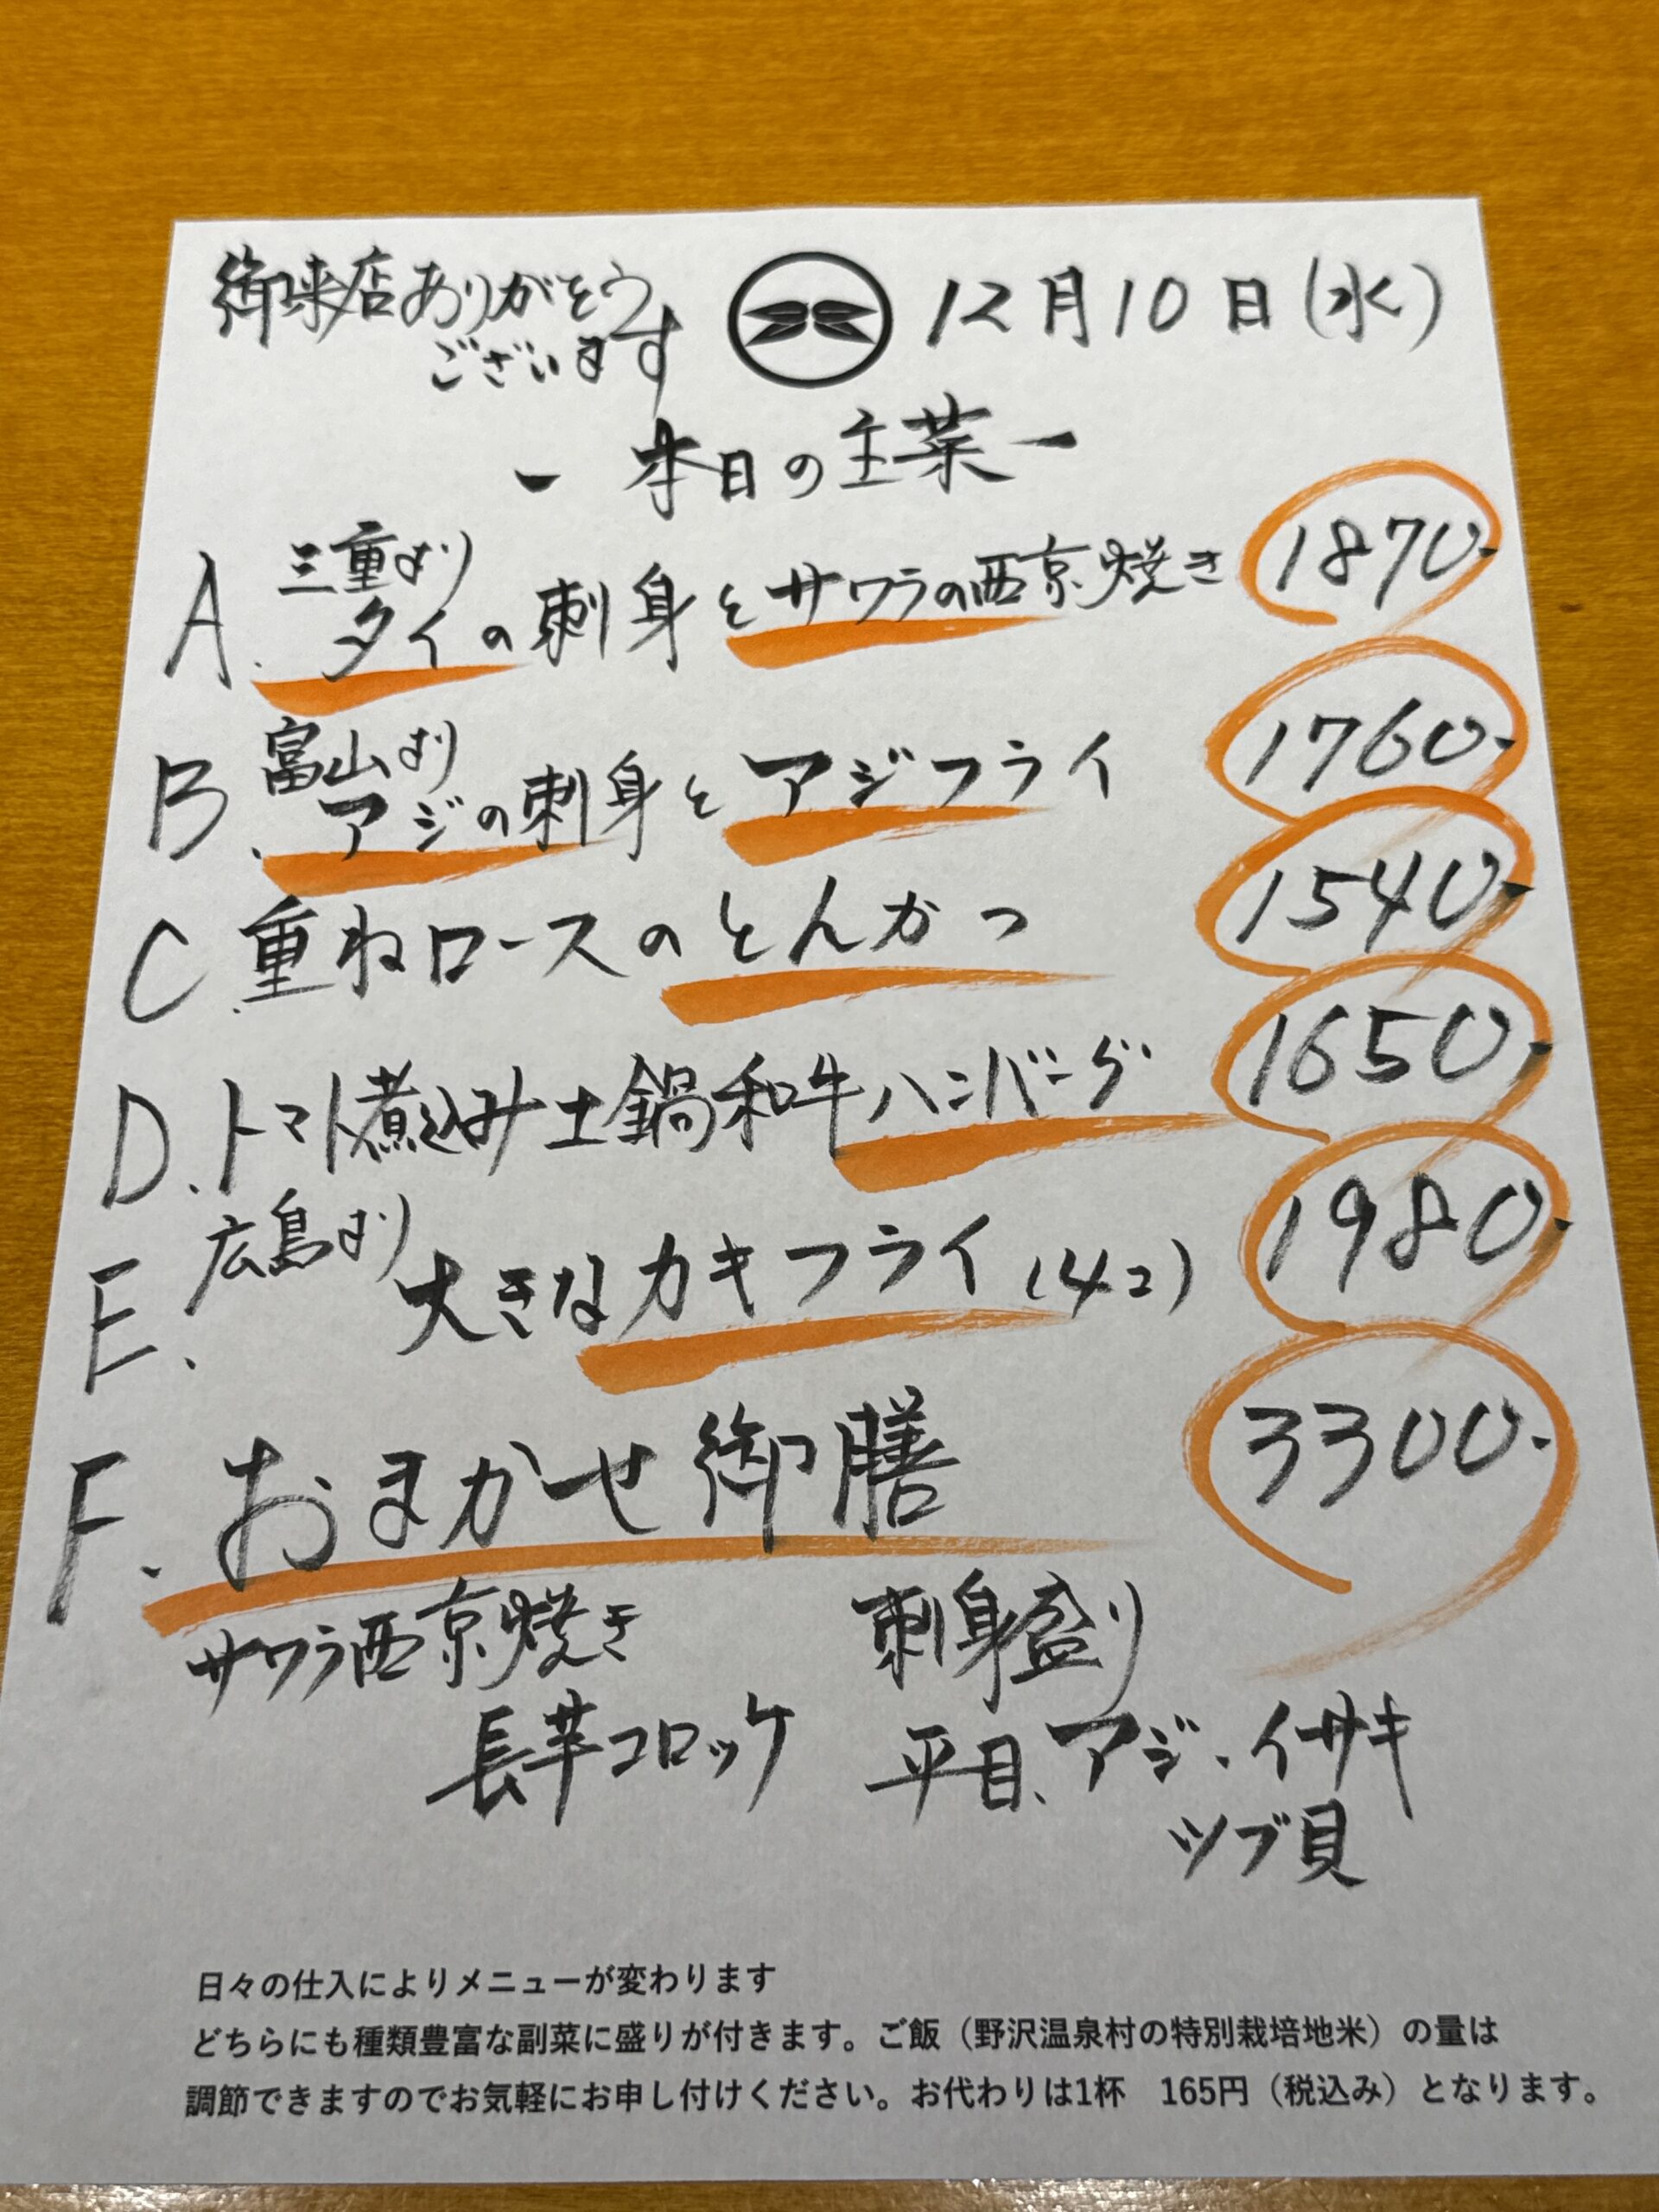 御来店ありがとう
ございます
12月10日(水)
ー 本日の主菜 ー
A. 三重より
タイの刺身とサワラの西京焼き 1870.-
B. 富山より
アジの刺身とアジフライ 1760.-
C. 重ねロースのとんかつ 1540.-
D. トマト煮込み土鍋和牛ハンバーグ 1650.-
E. 広島より
大きなカキフライ(4コ) 1980.-
F. おまかせ御膳 3300.-
サワラ西京焼き 刺身盛り
長芋コロッケ 平目、アジ、イサキ
ツブ貝
日々の仕入によりメニューが変わります
どちらにも種類豊富な副菜に盛りが付きます。ご飯（野沢温泉村の特別栽培地米）の量は
調節できますのでお気軽にお申し付けください。お代わりは1杯 165円（税込み）となります。